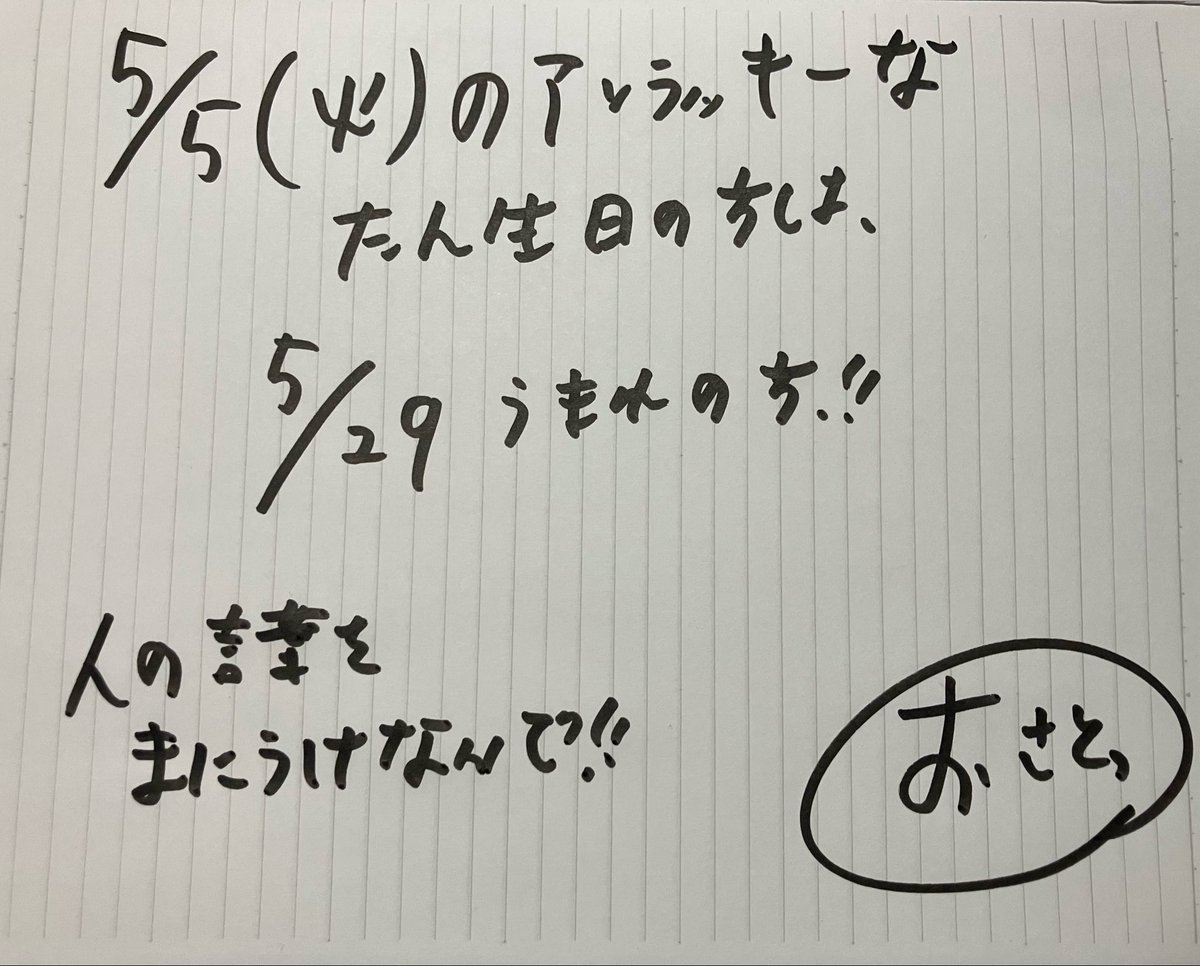 5/5(火)のアンラッキーな
たん生日の方は、
5/29 うまれの方!!
人の言葉を
まにうけないで!!
おさと、